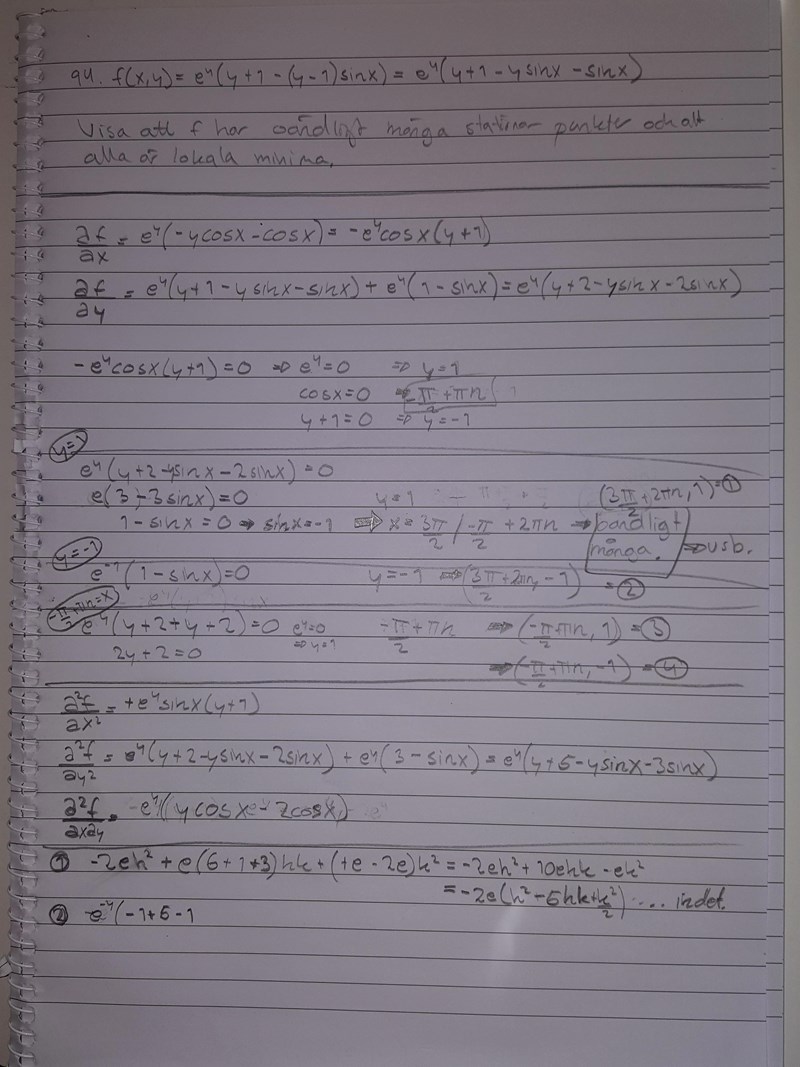 94. f(x,y) = e^y(y+1-(y-1)sinx) = e^y(y+1-ysinx-sinx)
Visa att f har oändligt många stationär punkter och att
alla är lokala minima.
∂f/∂x = e^y(-ycosx-cosx) = -e^ycosx(y+1)
∂f/∂y = e^y(y+1-ysinx-sinx) + e^y(1-sinx) = e^y(y+2-ysinx-2sinx)
-e^ycosx(y+1)=0 ⇒ e^y=0 ⇒ y=1
cosx=0 ⇒ -π/2+πn
y+1=0 ⇒ y=-1
y=1
e^y(y+2-ysinx-2sinx)=0
e(3-3sinx)=0 y=1 (3π/2+2πn,1)=①
1-sinx=0 ⇒ sinx=-1 ⇒ x=3π/2 / -π/2 + 2πn ⇒ oändligt
många. ⇒ vsb.
y=-1
e^-1(1-sinx)=0 y=-1 ⇒ (3π/2+2πn,-1) = ②
-π/2+πn=x
e^y(y+2+y+2)=0 e^y=0 ⇒ y=1 -π/2+πn ⇒ (-π/2+πn,1)=③
2y+2=0 ⇒ (-π/2+πn,-1)=④
∂²f/∂x² = +e^ysinx(y+1)
∂²f/∂y² = e^y(y+2-ysinx-2sinx) + e^y(3-sinx) = e^y(y+5-ysinx-3sinx)
∂²f/∂x∂y = -e^y(ycosx 2cosx)
① -2eh² + e(6+1+3)hk + (+e-2e)k² = -2eh²+10ehk-ek²
= -2e(h²-5hk+k²/2) .... indef.
② -e^-y(-1+5-1